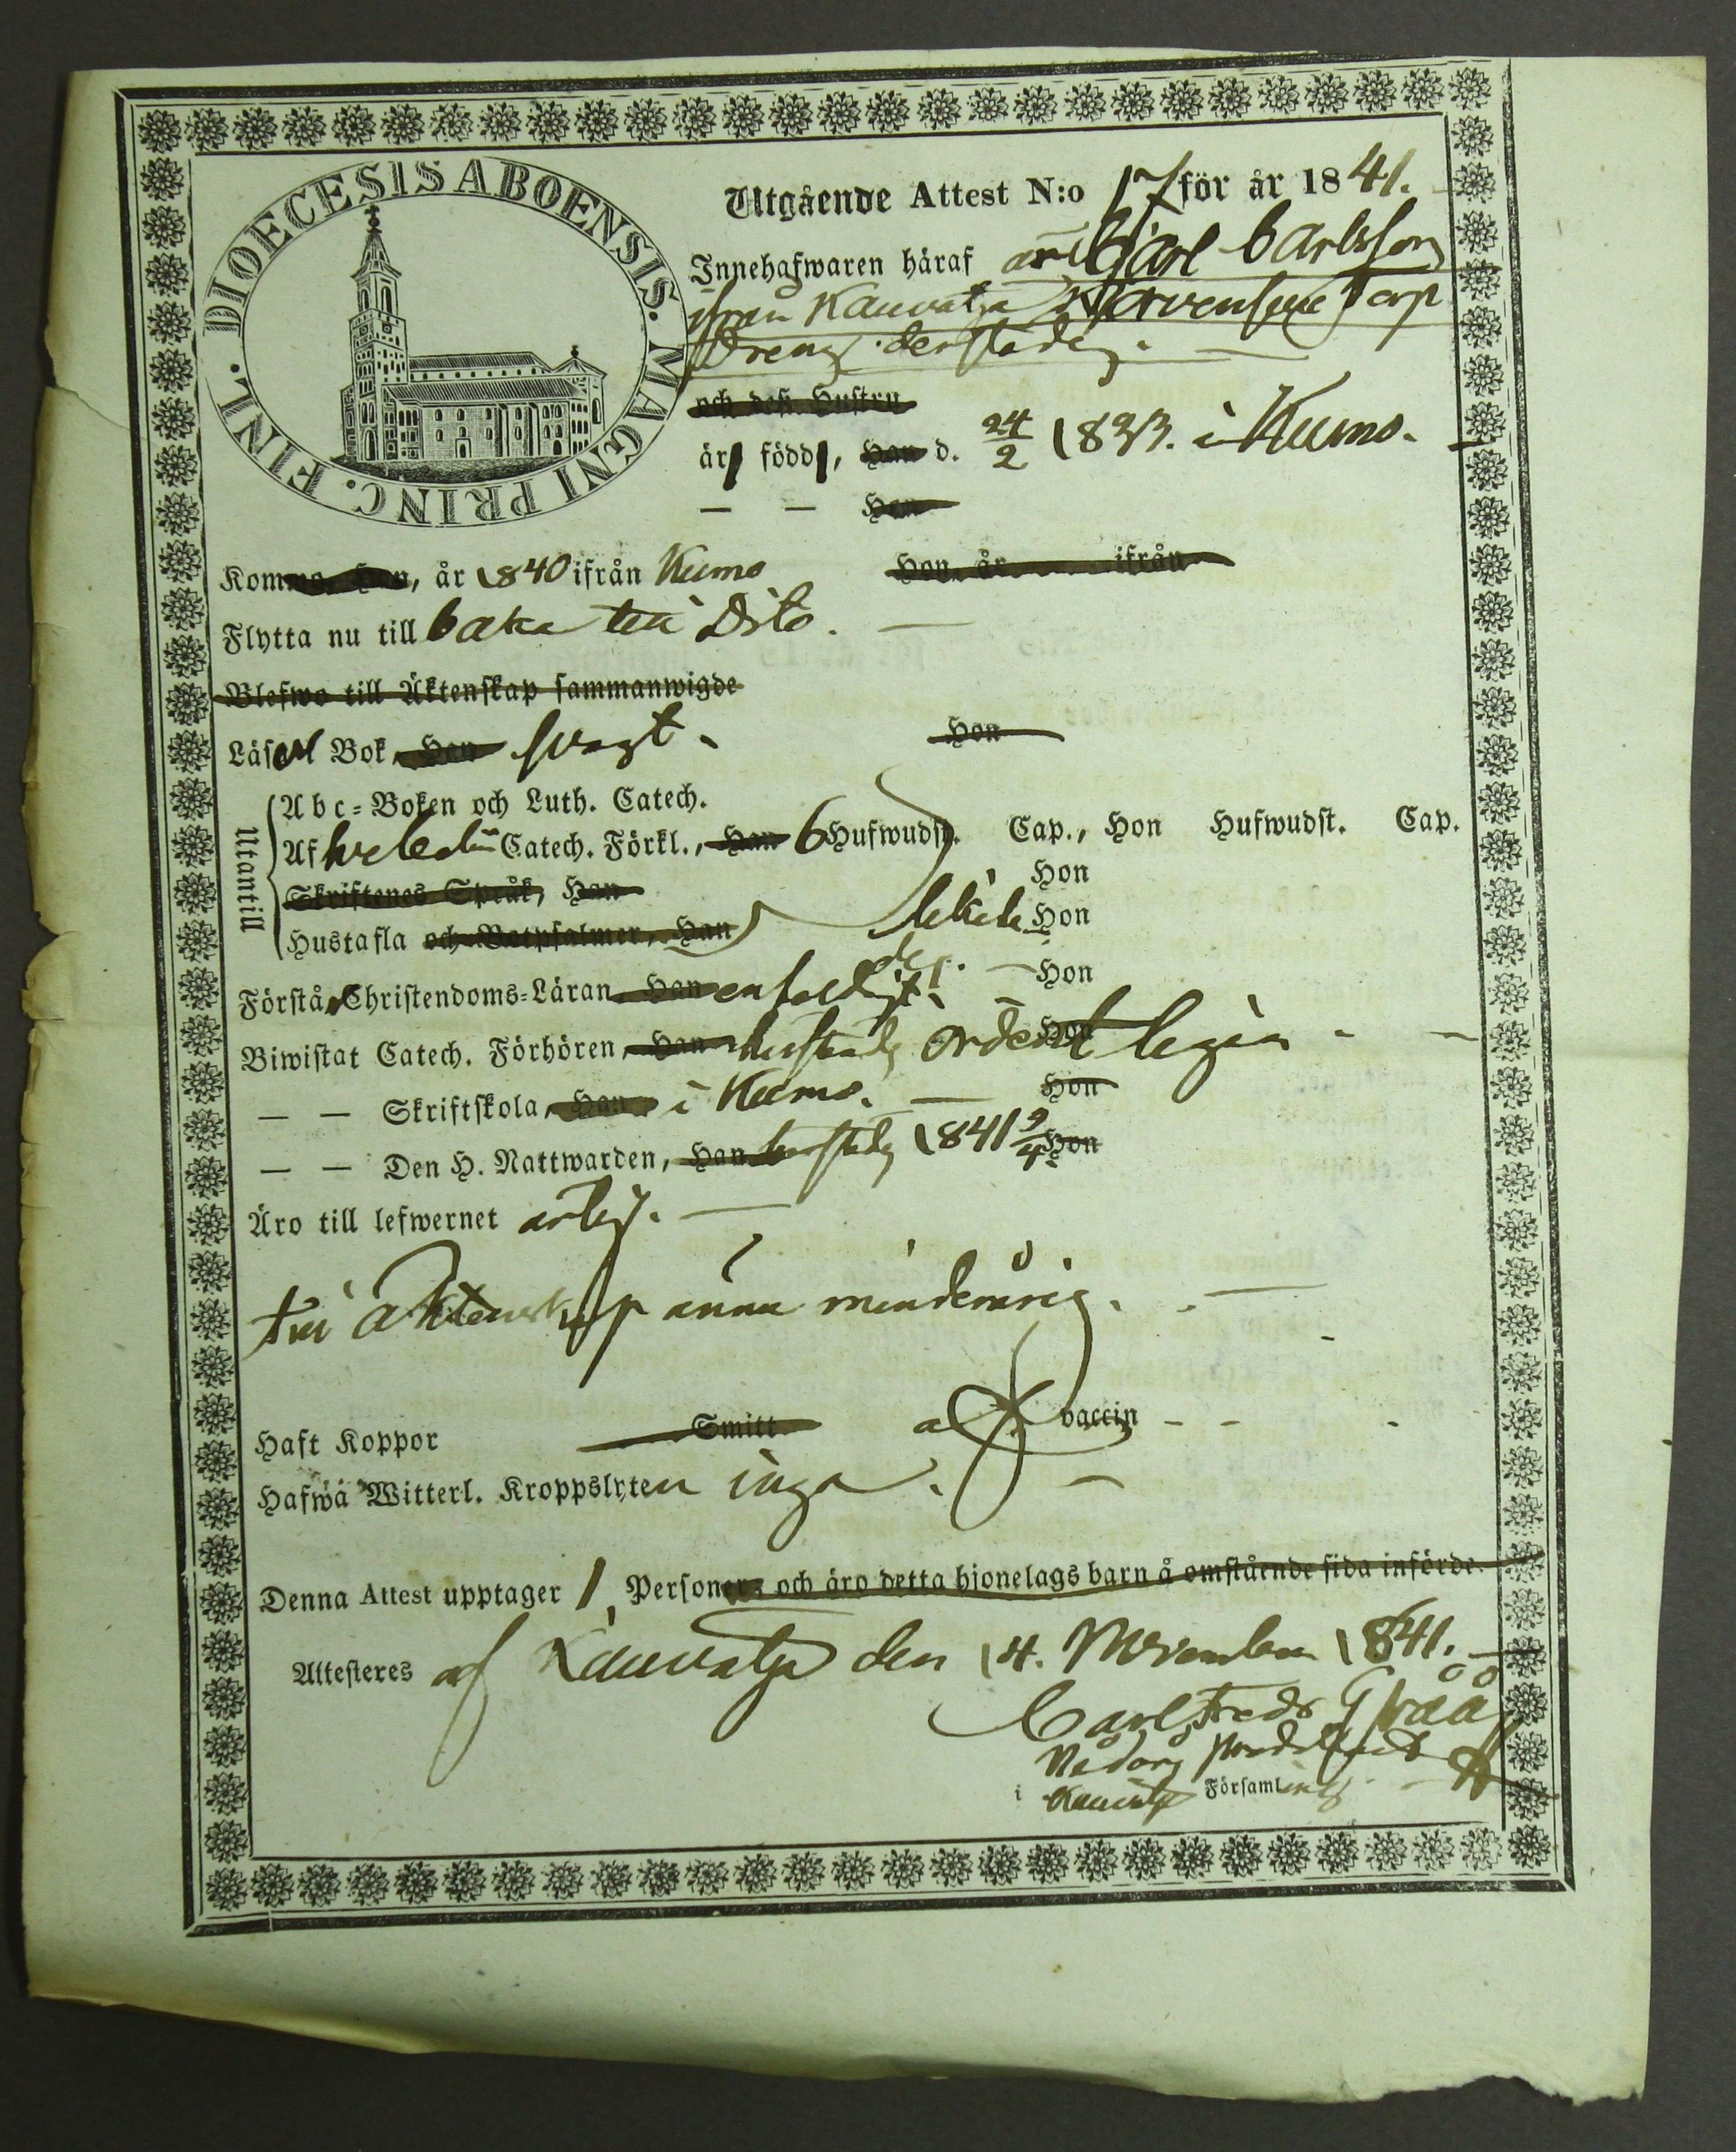 DIOECESIS ABOENSIS. MAGNI PRINC. FINL.
Utgående Attest N:o 17 för år 1841.
Innehafwaren häraf är Carl Carlsson
ifrån Kauvatsa Torp
Dreng derstädes.
och deß Hustru
är född, Han d. 24/2 18 i Kumo.
— — Hon
Komma Han, år 1840 ifrån Kumo Hon år ifrån
Flytta nu till baka till Dito.
Blefwo till Äktenskap sammanwigde
Läser Bok, Han svagt. Hon
Utantill
Abc-Boken och Luth. Catech.
Af Catech. Förkl., Han 6 Hufwudst. Cap., Hon Hufwudst. Cap.
Skriftenes Språk, Han Hon
Hustafla och Botpsalmer, Han Hon
Förstår Christendoms-Läran, Han enfaldigt. Hon
Biwistat Catech. Förhören, Han Hon
— — Skriftskola, Han i Kumo. Hon
— — Den H. Nattwarden, Han derstädes 1841 Hon
Äro till lefwernet ärlig.
till äktenskap ännu minderårig.
Haft Koppor Smitt af vaccin
Hafwa Witterl. Kroppslyten inga.
Denna Attest upptager 1 Personer, och äro detta hjonelags barn å omstående sida införde.
Attesteres af Kauvatsa den 14. November 1841.
Carl Fredr Gråå
i Kauvatsa Församling